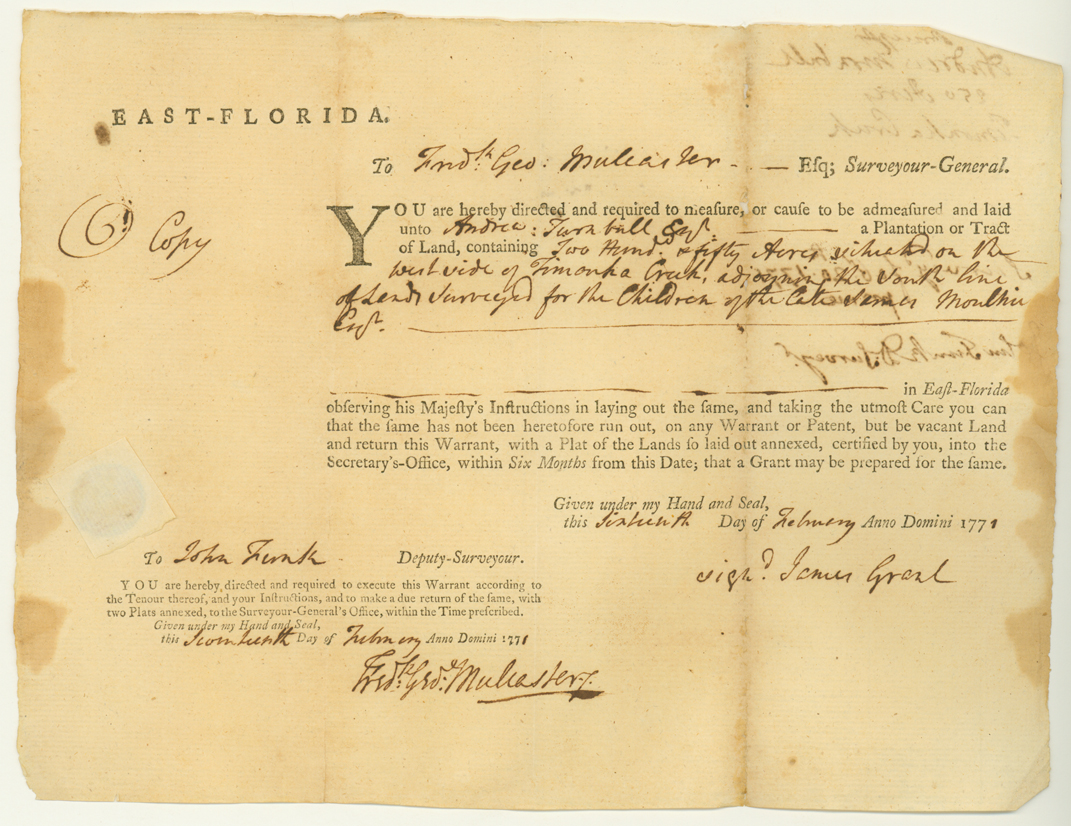 EAST-FLORIDA.
To Fred.k Geo: Mulcaster - — Esq; Surveyour-General.
Copy
YOU are hereby directed and required to measure, or cause to be admeasured and laid
unto Andrew Turnbull Esq.r — a Plantation or Tract
of Land, containing Two Hund.d & fifty Acres situated on the
west side of Timonka Creek, adjoining the South line
of Lands Surveyed for the Children of the late James Moultrie
Esq.r
in East-Florida
obſerving his Majeſty's Inſtructions in laying out the ſame, and taking the utmoſt Care you can
that the ſame has not been heretofore run out, on any Warrant or Patent, but be vacant Land
and return this Warrant, with a Plat of the Lands ſo laid out annexed, certified by you, into the
Secretary's-Office, within Six Months from this Date; that a Grant may be prepared for the ſame.
Given under my Hand and Seal,
this Sixteenth Day of February Anno Domini 1771
sign.d James Grant
To John Funk - Deputy-Surveyour.
YOU are hereby directed and required to execute this Warrant according to
the Tenour thereof, and your Inſtructions, and to make a due return of the ſame, with
two Plats annexed, to the Surveyour-General's Office, within the Time preſcribed.
Given under my Hand and Seal,
this Seventeenth Day of February Anno Domini 1771
Fred.k Geo. Mulcaster